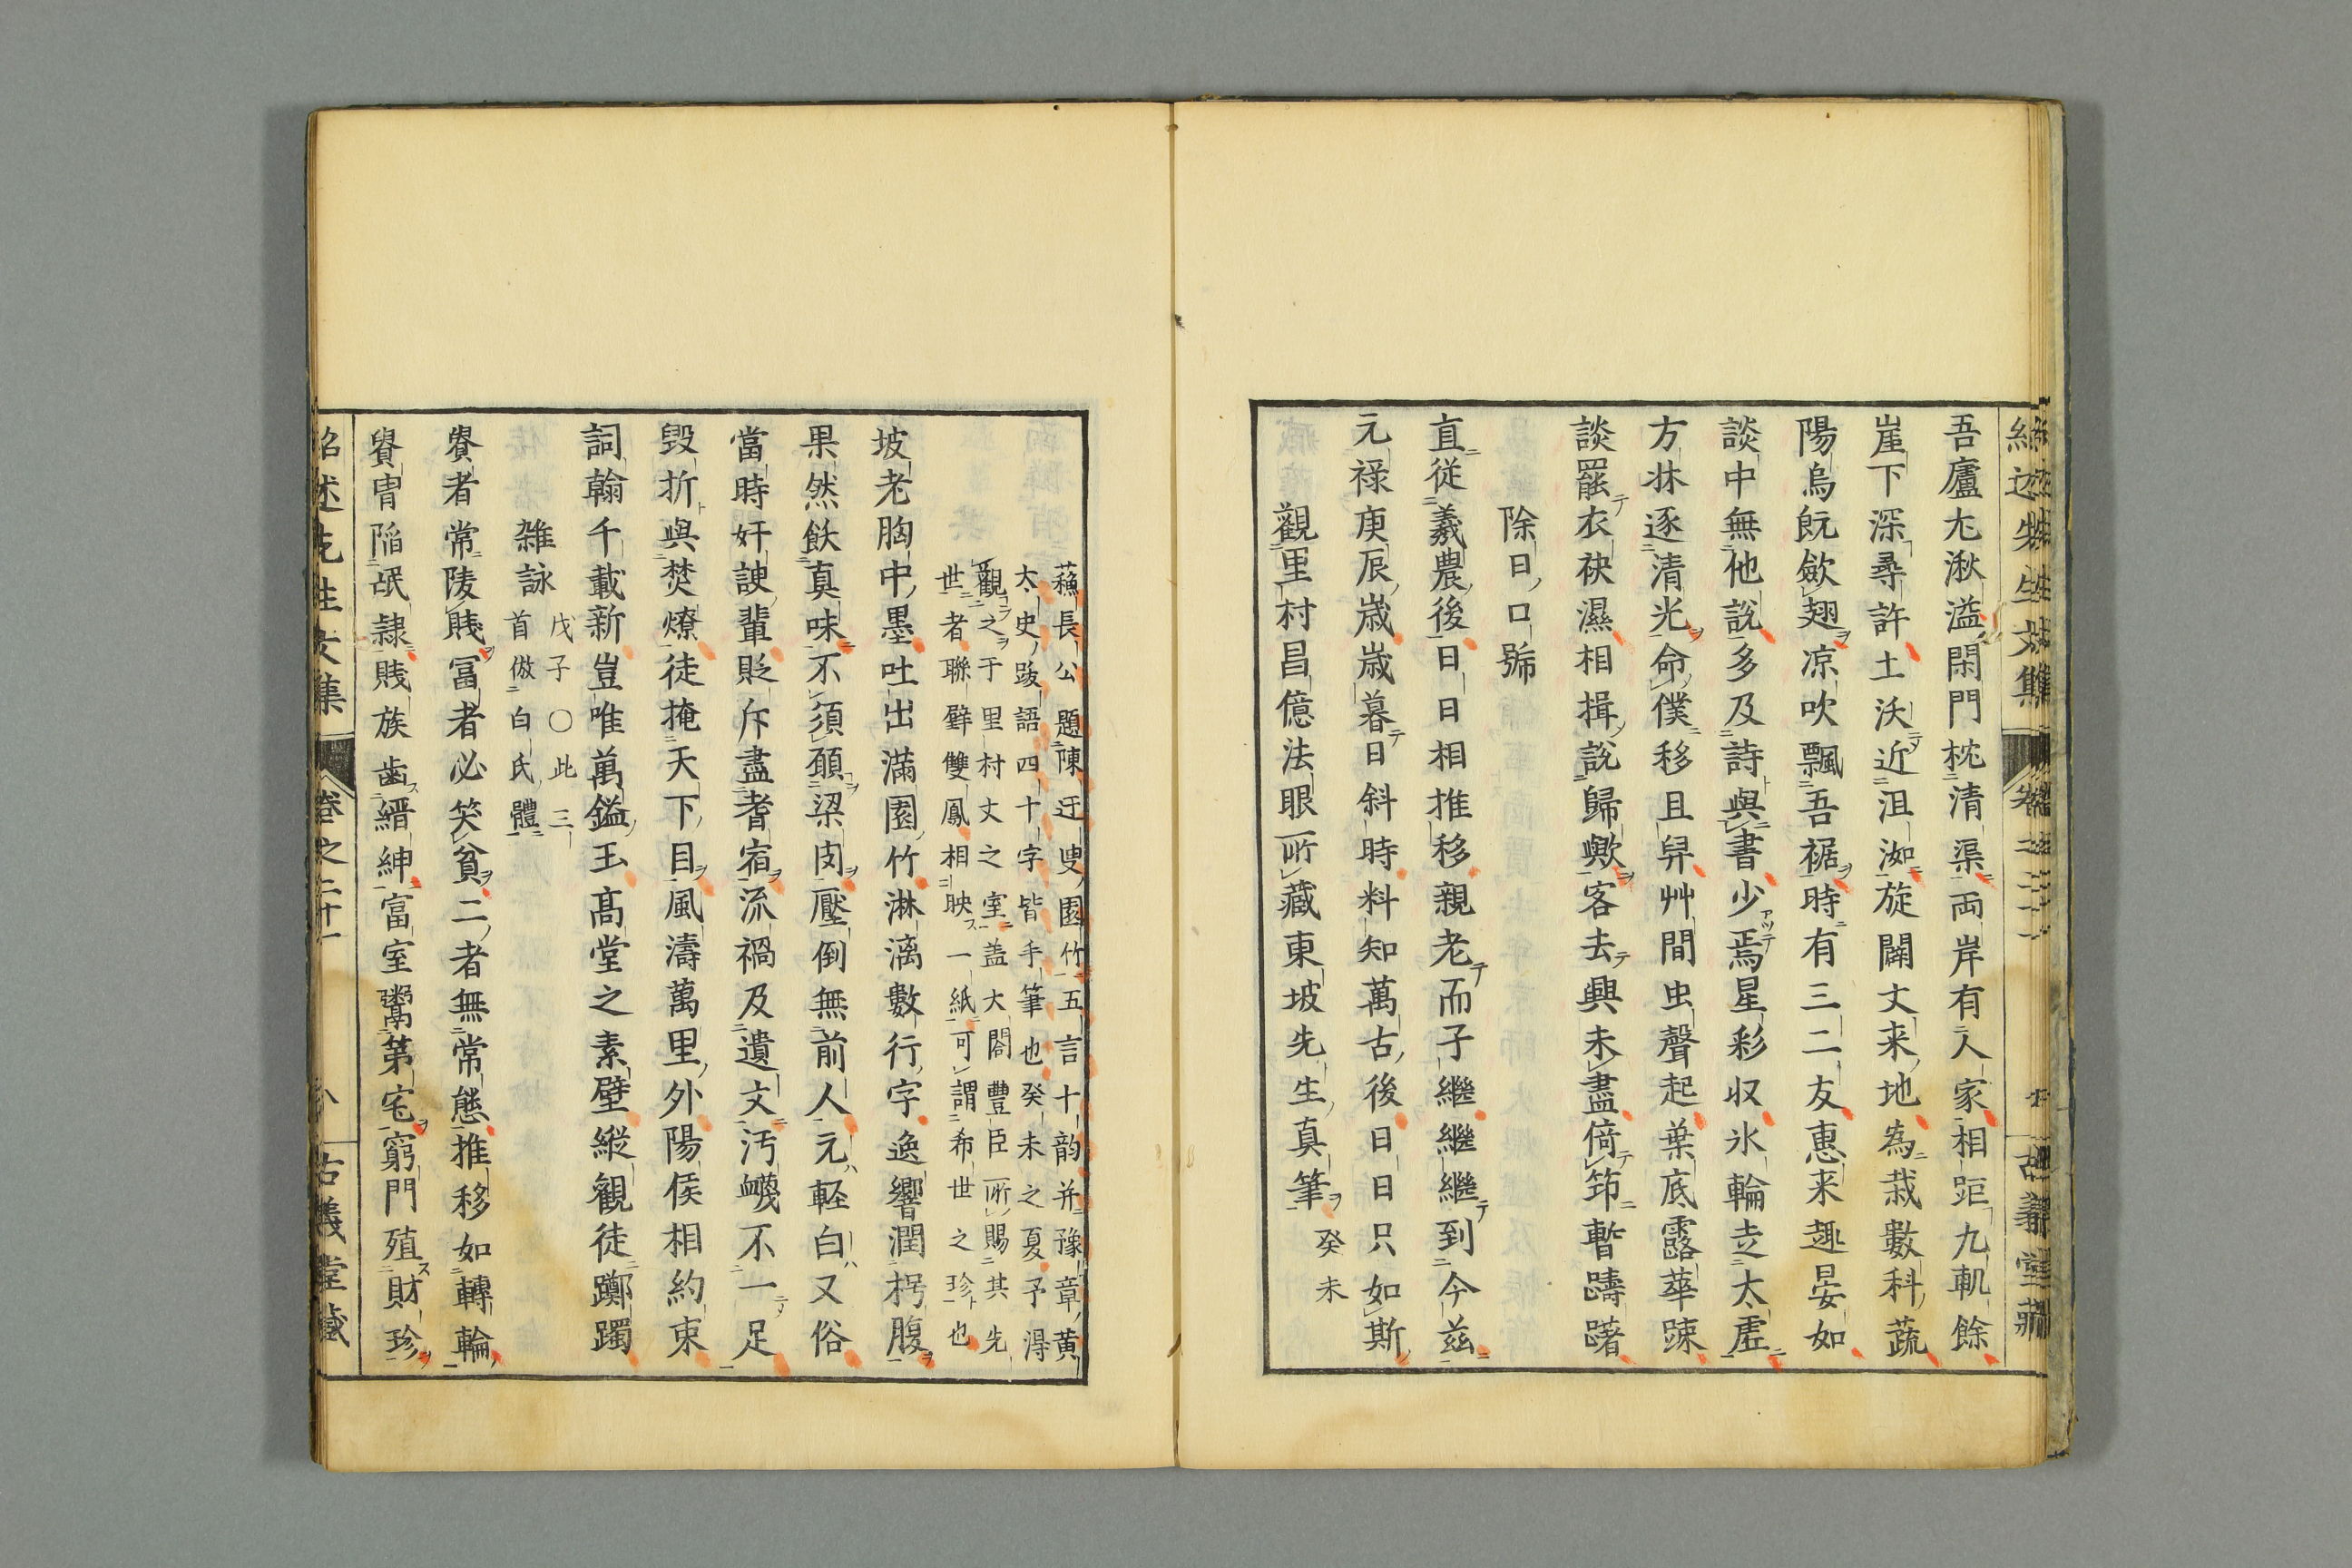 吾廬尢湫溢閑門枕清渠両岸有人家相距九軌餘
崖下深尋許土沃近沮洳旋闢丈来地為栽數科蔬
陽烏旣歛翅凉吹飄吾裾時有三二友惠来趣晏如
談中無他說多及詩與書少焉星彩収氷輪赱太虛
方牀逐清光命僕移且舁艸間虫聲起葉底露華踈
談罷衣袂濕相揖說歸歟客去興未盡倚筇暫躊躇
除日口號
直従羲農後日日相推移親老而子繼繼繼到今茲
元禄庚辰歳歳暮日斜時料知萬古後日日只如斯
觀里村昌億法眼所藏東坡先生真筆 癸未
蘓長公題陳迂叟園竹五言十韵并豫章黄
太史跋語四十字皆手筆也癸未之夏予淂
觀之于里村丈之室盖大閤豐臣所賜其先
世者聯壁雙鳳相映一紙可謂希世之珍也
坡老胸中墨吐出滿園竹淋漓數行字逸響潤枵腹
果然飫真味不須願梁肉壓倒無前人元軽白又俗
當時奸諛輩貶斥盡耆宿流禍及遺文汚衊不一足
毀折與焚燎徒掩天下目風濤萬里外陽侯相約束
詞翰千載新豈唯萬鎰玉髙堂之素壁縱観徒躑躅
雑詠 戊子〇此三首倣白氏體
貴者常陵賎冨者必笑貧二者無常態推移如轉輪
貴冑陥氓隷賎族歯縉紳富室鬻第宅窮門殖財珍
紹述先生文集 卷之二十一 古義堂藏